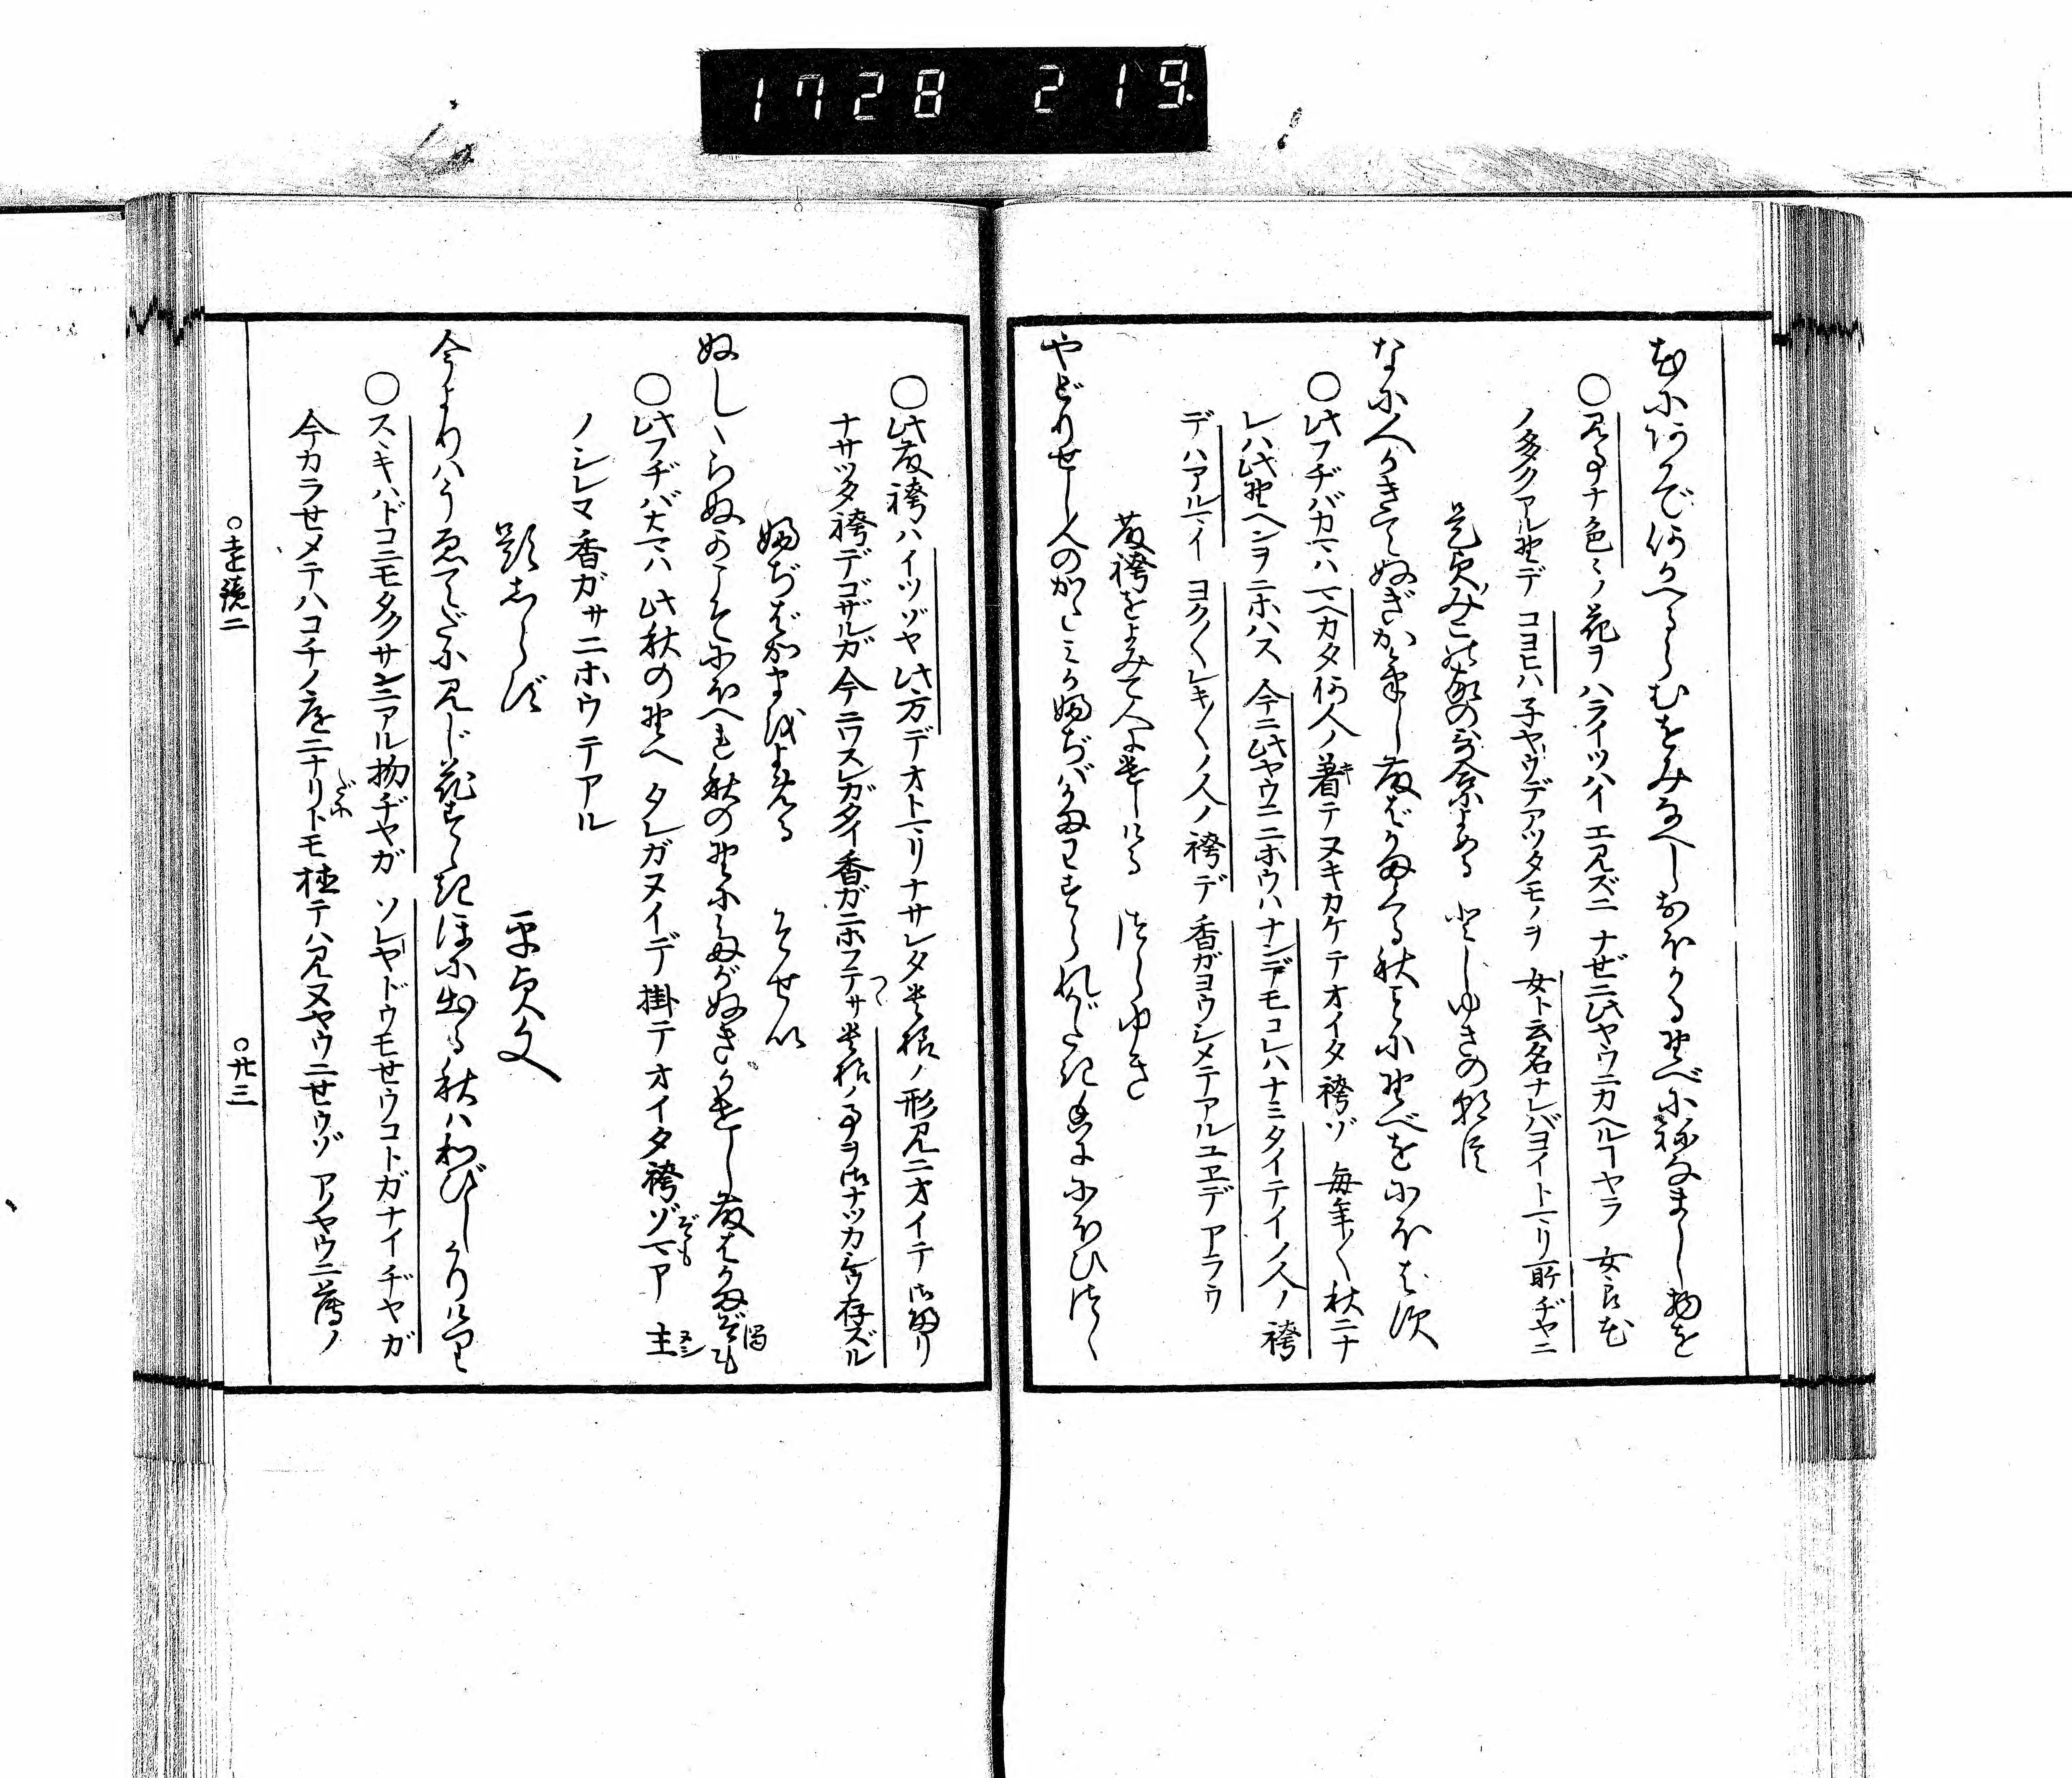 1728 219
花にあかで何かへるらむをみなへしおほかる野べにねなまし物を
○見事ナ色〻ノ花ヲハライツハイエ見ズニナゼニ此ヤウニカヘルヿヤラ女郎花
ノ多クアル野デコヨヒハ子ヤウデアツタモノヲ女ト云名ナレバヨイトマリ所ヂヤニ
是貞みこの家の歌合によめる としゆきの朝臣
なに人かきてぬぎかけし藤ばかまくる秋ごとに野べをにほはす
○此フヂバカマハマヘカタ何人ノ着テヌキカケテオイタ袴ゾ毎年〱秋ニナ
レハ此野ヘンヲニホハス今ニ此ヤウニニホウハナンデモコレハナミタイテイノ人ノ袴
デハアルマイヨク〱レキ〱ノ人ノ袴デ香ガヨウシメテアルユヱデアラウ
藤袴をよみて人につかはしける つらゆき
やどりせし人のかたみか藤ばかまわすられがたき香ににほひつゝ
○此藤袴ハイツゾヤ此方デオトマリナサレタ貴様ノ形見ニオイテ御帰リ
ナサツタ袴デゴザルガ今ニワスレガタイ香ガニホフテサ貴様ノ事ヲ御ナツカシウ存ズル
藤ばかまをよめる そせい
ぬしゝらぬ香こそにほへれ秋の野にたがぬぎかけし藤ばかまぞも
○此フヂバカマハ此秋の野ヘタレガヌイデ掛テオイタ袴ゾマア主
ノシレヌ香ガサニホウテアル
題しらず 平貞文
今よりはうゑてだに見じ花すゝきほに出る秋はわびしかりけり
○スヽキハドコニモタクサンニアル物ヂヤガソレヤドウモセウコトガナイヂヤガ
今カラセメテハコチノ庭ニナリトモ植テハ見ヌヤウニセウゾアノヤウニ薄ノ
○遠鏡二 ○廿三